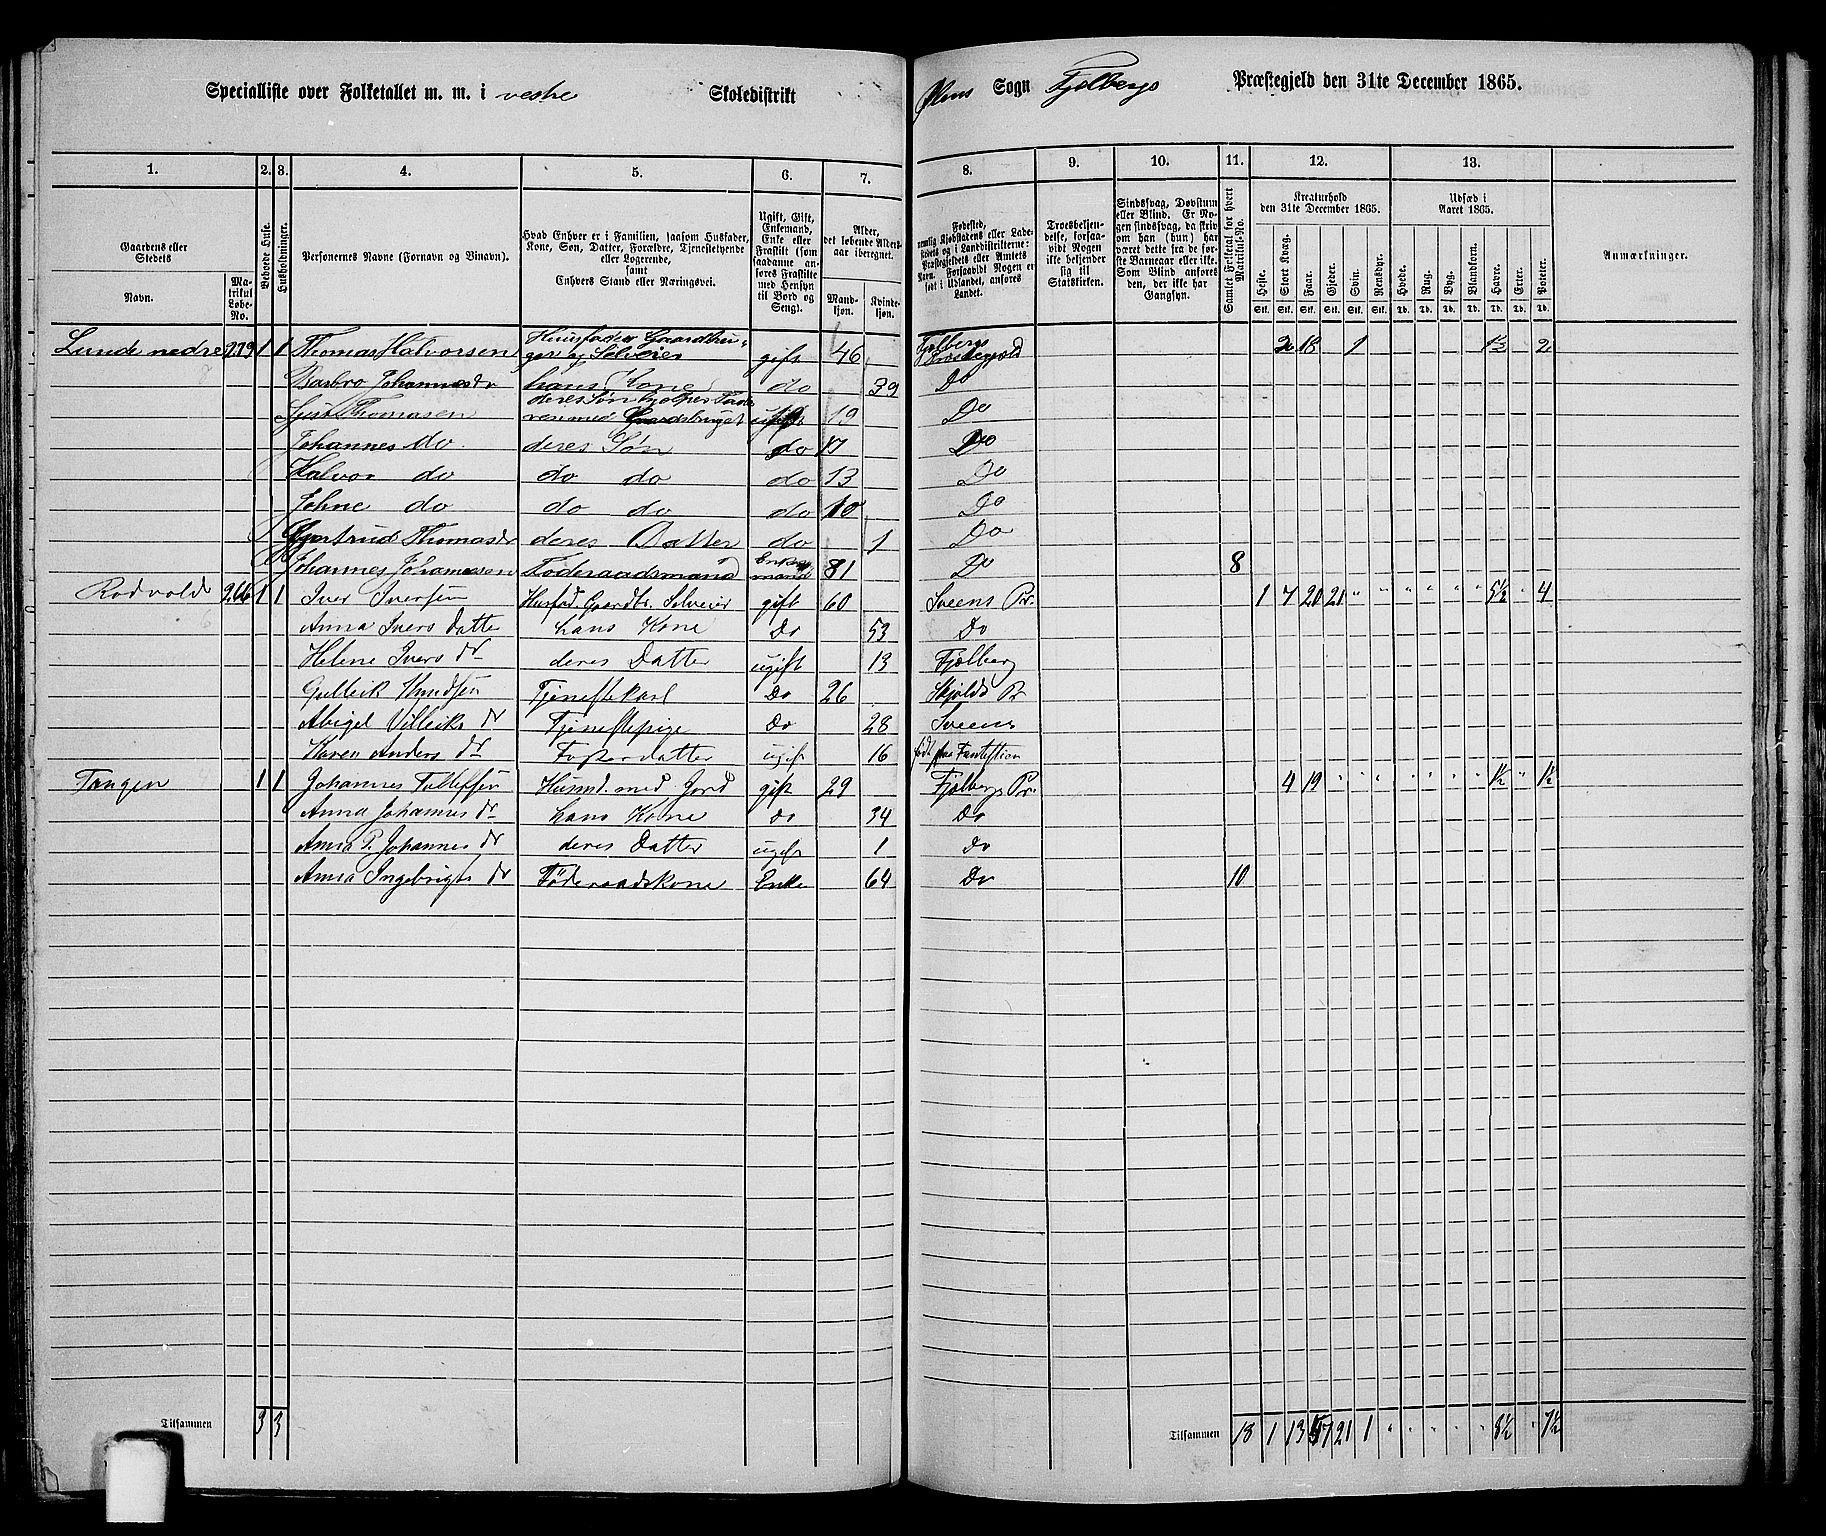 Specialliste over Folketallet m. m. i vestre Skoledistrikt Ølens Sogn Fjelbergs Præstegjeld den 31te December 1865.
1. 2. 3. 4. 5. 6. 7. 8. 9. 10. 11. 12. 13.
Gaardens eller Stedets
Navn.
Matrikul Løbe-No.
Beboede Huse.
Husholdninger.
Personernes Navne (Fornavn og Vinavn).
Hvad Enhver er i Familien, saasom Husfader, Kone, Søn, Datter, Forældre, Tjenestetyende eller Logerende, samt Enhvers Stand eller Næringsvei.
Ugift, Gift, Enkemand, Enke eller Fraskilt (som saadanne anføres Fraskilte med Hensyn til Bord og Seng).
Alder, det løbende Alders- aar iberegnet.
Mand- kjøn.
Kvinde- kjøn.
Fødested,
Troesbekjendelse, forsaavidt Nogen ikke bekjender sig til Statskirken.
Sindssvag, Døvstum eller Blind. Er Nogen sindssvag, da skrives om han (hun) har været dette fra de første Barneaar eller ikke. Som Blind anføres den, der ikke har Gangsyn.
Samlet Folketal for hvert Matrikul-No.
Kreaturhold den 31te December 1865.
Heste. Stort Kvæg. Faar. Gjeder. Svin. Rensdyr.
Udsæd i Aaret 1865.
Hvede. Rug. Byg. Blandkorn. Havre. Erter. Poteter.
Stk. Stk. Stk. Stk. Stk. Stk. Td. Td. Td. Td. Td. Td. Td.
Anmærkninger.
Lunde nedre 279 1 1 Thomas Halvorsen Huusfader Gaardbru- ger og Selveier gift 46 Fjelbergs Præstegjeld 2 18 1 1½ 2
Barbro Johannesdr hans Kone do 39 Do
Thomasen deres Søn hjelper Fade- ren med Gaardsbruget ugift 19 Do
Johannes do deres Søn do 17 Do
Halvor do do do do 13 Do
Johne do do do do 10 Do
Gjertrud Thomasdr deres Datter do 1 Do
Johannes Johannessen Føderaadsmand Enke- mand 81 Do 8
Rødvolde 1 1 Iver Iversen Husfad. Gaardbr. Selveier gift 60 Sveens Pr. 1 7 20 21 " " " " " " 5½ " 4
Anna Ivers datter hans Kone Do 53 Do
Helene Ivers dr deres Datter ugift 13 Fjelberg
Gulleik Knudsen Tjenestekarl Do 26 Skjolds Pr
Abigel Villeiks dr Tjenestepige Do 28 Sveens
Karen Anders dr Fosterdatter ugift 16 født paa Fantestien
Tangen 1 1 Johannes Tollefsen Husmd. med Jord gift 29 Fjelbergs Pr. 4 19 " " " " " " " 1½ " 1½
Anna Johannes dr hans Kone Do 34 Do
Anna P. Johannes dr deres Datter ugift 1 do
Anna Ingebrigts dr Føderaadskone Enke 64 Do 10
Tilsammen 3 3 Tilsammen 18 1 13 57 21 1 " " " " " 8½ " 7½